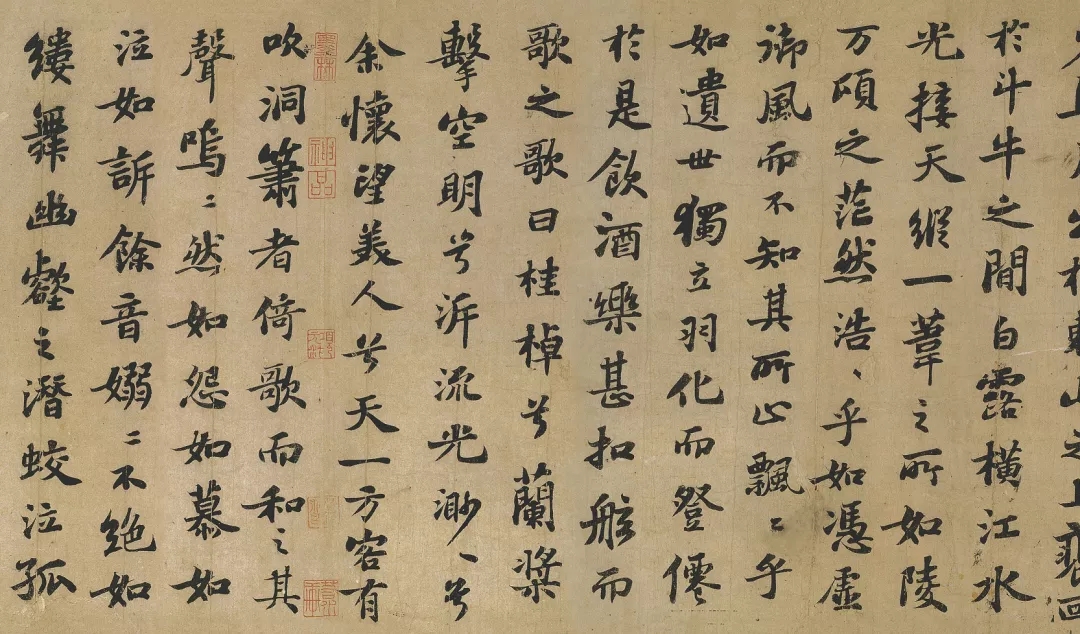 於東山之上裵洄
於斗牛之間白露橫江水
光接天縱一葦之所如陵
万頃之茫然浩〻乎如馮虛
御風而不知其所止飄〻乎
如遺世獨立羽化而登僊
於是飲酒樂甚扣舷而
歌之歌曰桂棹兮蘭槳
擊空明兮泝流光渺〻兮
余懷望美人兮天一方客有
吹洞簫者倚歌而和之其
聲嗚〻然如怨如慕如
泣如訴餘音嫋〻不絶如
縷舞幽壑之潛蛟泣孤
神品